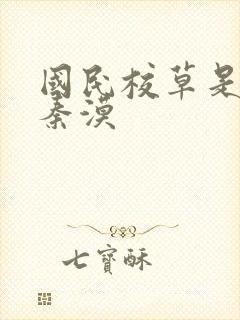 國民校草是
秦漠
七寶酥